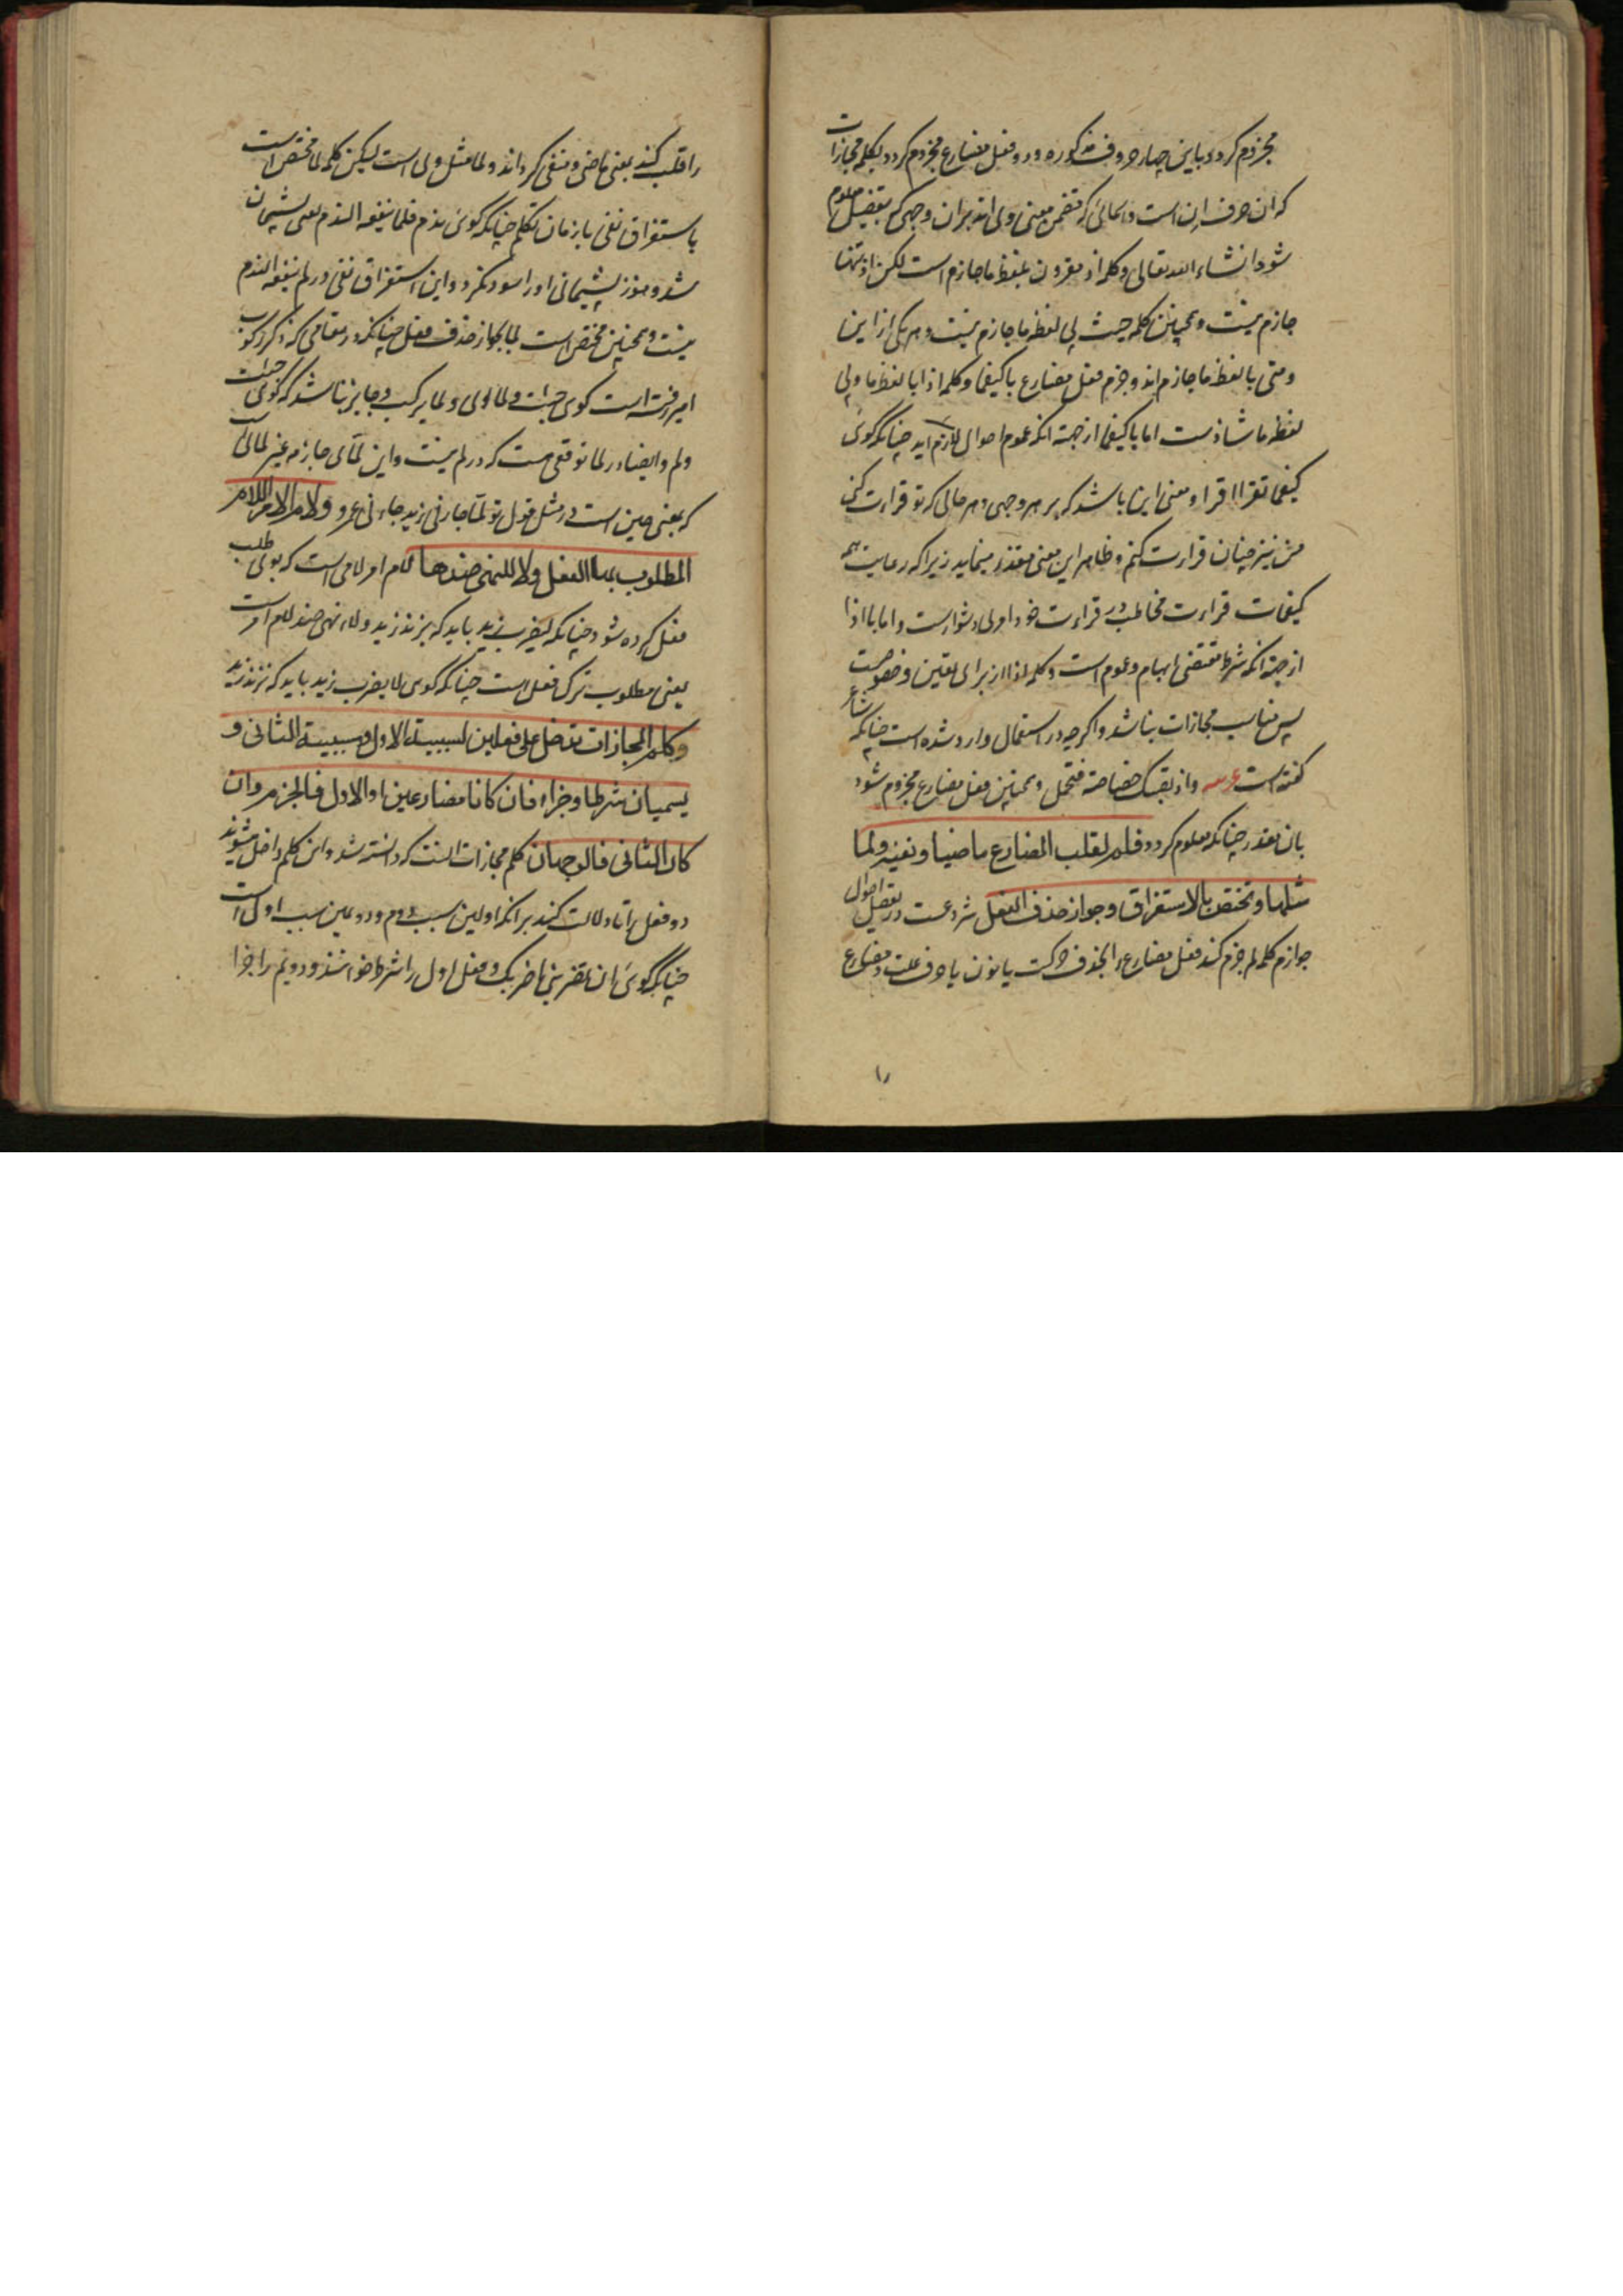 مجزوم کردد باین چهار حروف مذکوره و دو فعل مضارع مجزوم کردد بکلم مجازات
که ان حرف ان است و اسمائی که متضمن معنی وی اند بران وجهی که بتفصیل معلوم
شود انشاء الله تعالی و کلمه اذ مقرون بلفظ ما جازم است لکن اذ تنها
جازم نیست و همچنین کلمه حیث بی لفظ ما جازم نیست و هر یکی از این
و متی با لفظ ما جازم اند و جزم فعل مضارع با کیفما و کلمه اذا با لفظ ما و بی
لفظ ما شاذست اما با کیفما از جهة انکه عموم احوال لازم اید چنانکه کوئی
کیفما تقرا اقرا و معنی این باشد که بر هر وجهی و هر حالی که تو قراءت کنی
من نیز چنان قراءت کنم و ظاهر این معنی متعذر مینماید زیرا که رعایت همه
کیفیات قراءت مخاطب در قراءت خود امر دشوارست و اما با اذا
از جهة انکه شرط مقتضی ابهام و عموم است و کلمه اذا از برای تعین و خصوصیت
پس مناسب مجازات نباشد و اکرچه در استعمال وارد شده است چنانکه شاعر
کفته است ع و اذ تصبک خصاصة فتحمل و همچنین فعل مضارع مجزوم شود
بان مقدر چنانکه معلوم کردد فلم لقلب المضارع ماضیا و نفیه و لما
مثلها و تختص بالاستغراق و جواز حذف الفعل شروعست در تفصیل احوال
جوازم کلمه لم جزم کند فعل مضارع را بحذف حرکت یا نون یا حرف علت و مضارع
را
را قلب کند بمعنی ماضی و منفی کرداند و لما مثل وی است لیکن کلمه لما مختص است
باستغراق نفی تا زمان تکلم چنانکه کوئی ندم فلما ینفعه الندم یعنی پشیمان
شد و هنوز پشیمانی او را سود نکرد و این استغراق نفی در لم ینفعه الندم
نیست و همچنین مختص است لما بجواز حذف فعل چنانکه در مقامی که ذکر رکوب
امیر رفته است کوئی جئت و لما ای و لما یرکب و جایز نباشد که کوئی جئت
و لم و ایضا در لما توقعی هست که در لم نیست و این لمای جازمه غیر لمائی ست
که بمعنی حین است در مثل قول تو لما جاءنی زید جاءنی عمرو و لام الامر اللام
المطلوب بها الفعل و لا للنهی ضدها لام امر لامی است که بوی طلب
فعل کرده شود چنانکه لیضرب زید باید که بزند زید و لاء نهی ضد لام امر است
یعنی مطلوب ترک فعل است چنانکه کوئی لا یضرب زید باید که نزند زید
و کلم المجازات تدخل علی فعلین لسببیة الاول و مسببیة الثانی و
یسمیان شرطا و جزاء فان کانا مضارعین او الاول فالجزم و ان
کان الثانی فالوجهان کلم مجازات انست که دانسته شد و این کلم داخل میشوند
دو فعل را تا دلالت کنند برانکه اولین سبب دوم و دومین مسبب اول است
چنانکه کوئی ان تضربنی اضربک و فعل اول را شرط خوانند و دویم را جزا